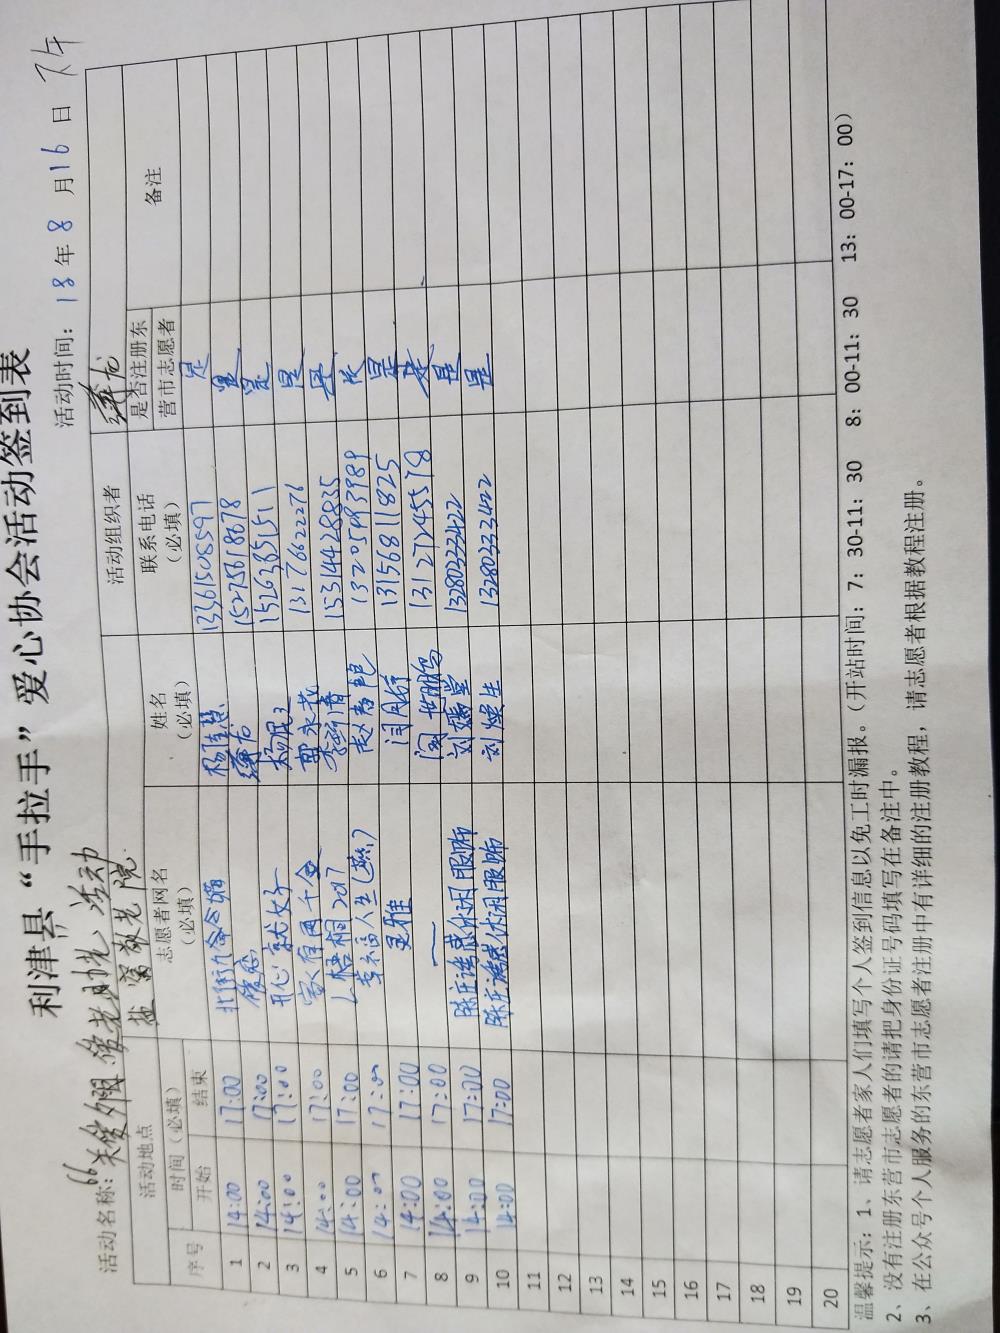 利津县“手拉手”爱心协会活动签到表
活动名称：关爱夕阳 活动 活动时间：18年8月16日下午
活动地点 盐窝敬老院 活动组织者
序号 时间（必填） 志愿者网名（必填） 姓名（必填） 联系电话（必填） 是否注册东营市志愿者 备注
开始 结束
1 14:00 17:00 13361508597 是
2 14:00 17:00 15275618678 是
3 14:00 17:00 开心就好 杨民 15263851511 是
4 14:00 17:00 家有两千金 13176622276 是
5 14:00 17:00 梧桐2017 李新春 15314428835 是
6 14:00 17:00 幸福人生(燕) 赵春艳 13205493989 是
7 14:00 17:00 闫月 13156811825 是
8 14:00 17:00 — 闫鹏 13127245578 是
9 14:00 17:00 陈庄诱惑休闲服饰 刘 13280233422 是
10 14:00 17:00 陈庄诱惑休闲服饰 刘 生 13280233422 是
11
12
13
14
15
16
17
18
19
20
温馨提示：1、请志愿者家人们填写个人签到信息以免工时漏报。（开站时间：7：30-11：30 8：00-11：30 13：00-17：00）
2、没有注册东营市志愿者的请把身份证号码填写在备注中。
3、在公众号个人服务的东营市志愿者注册中有详细的注册教程，请志愿者根据教程注册。